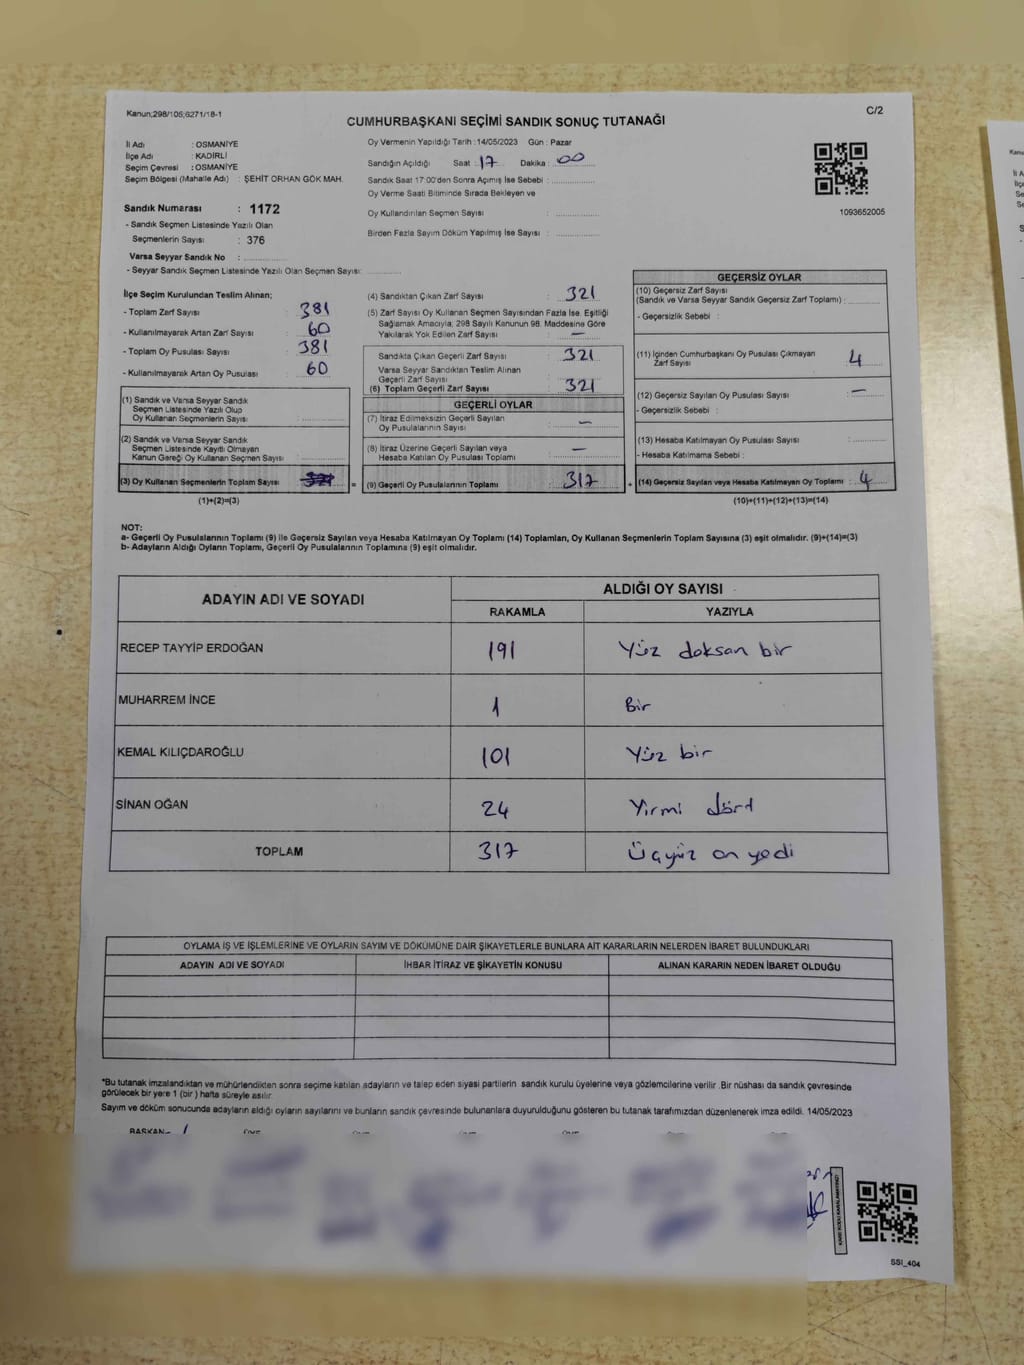 Kanun;298/105;6271/18-1
C/2
CUMHURBAŞKANI SEÇİMİ SANDIK SONUÇ TUTANAĞI
İl Adı : OSMANİYE
İlçe Adı : KADİRLİ
Seçim Çevresi : OSMANİYE
Seçim Bölgesi (Mahalle Adı) : ŞEHİT ORHAN GÖK MAH.
Sandık Numarası : 1172
- Sandık Seçmen Listesinde Yazılı Olan
Seçmenlerin Sayısı : 376
Varsa Seyyar Sandık No :
- Seyyar Sandık Seçmen Listesinde Yazılı Olan Seçmen Sayısı:
Oy Vermenin Yapıldığı Tarih : 14/05/2023 Gün : Pazar
Sandığın Açıldığı Saat : 17 Dakika : 00
Sandık Saat 17:00'den Sonra Açımış İse Sebebi :
Oy Verme Saati Bitiminde Sırada Bekleyen ve
Oy Kullandırılan Seçmen Sayısı :
Birden Fazla Sayım Döküm Yapılmış İse Sayısı :
1093652005
İlçe Seçim Kurulundan Teslim Alınan;
- Toplam Zarf Sayısı : 381
- Kullanılmayarak Artan Zarf Sayısı : 60
- Toplam Oy Pusulası Sayısı : 381
- Kullanılmayarak Artan Oy Pusulası : 60
(1) Sandık ve Varsa Seyyar Sandık
Seçmen Listesinde Yazılı Olup
Oy Kullanan Seçmenlerin Sayısı :
(2) Sandık ve Varsa Seyyar Sandık
Seçmen Listesinde Kayıtlı Olmayan
Kanun Gereği Oy Kullanan Seçmen Sayısı :
(3) Oy Kullanan Seçmenlerin Toplam Sayısı : 321 =
(1)+(2)=(3)
(4) Sandıktan Çıkan Zarf Sayısı : 321
(5) Zarf Sayısı Oy Kullanan Seçmen Sayısından Fazla İse, Eşitliği
Sağlamak Amacıyla, 298 Sayılı Kanunun 98. Maddesine Göre
Yakılarak Yok Edilen Zarf Sayısı : —
Sandıkta Çıkan Geçerli Zarf Sayısı : 321
Varsa Seyyar Sandıktan Teslim Alınan
Geçerli Zarf Sayısı :
(6) Toplam Geçerli Zarf Sayısı : 321
GEÇERLİ OYLAR
(7) İtiraz Edilmeksizin Geçerli Sayılan
Oy Pusulalarının Sayısı : —
(8) İtiraz Üzerine Geçerli Sayılan veya
Hesaba Katılan Oy Pusulası Toplamı : —
(9) Geçerli Oy Pusulalarının Toplamı : 317 +
GEÇERSİZ OYLAR
(10) Geçersiz Zarf Sayısı
(Sandık ve Varsa Seyyar Sandık Geçersiz Zarf Toplamı) :
- Geçersizlik Sebebi :
(11) İçinden Cumhurbaşkanı Oy Pusulası Çıkmayan
Zarf Sayısı : 4
(12) Geçersiz Sayılan Oy Pusulası Sayısı : —
- Geçersizlik Sebebi :
(13) Hesaba Katılmayan Oy Pusulası Sayısı :
- Hesaba Katılmama Sebebi :
(14) Geçersiz Sayılan veya Hesaba Katılmayan Oy Toplamı : 4
(10)+(11)+(12)+(13)=(14)
NOT:
a- Geçerli Oy Pusulalarının Toplamı (9) ile Geçersiz Sayılan veya Hesaba Katılmayan Oy Toplamı (14) Toplamları, Oy Kullanan Seçmenlerin Toplam Sayısına (3) eşit olmalıdır. (9)+(14)=(3)
b- Adayların Aldığı Oyların Toplamı, Geçerli Oy Pusulalarının Toplamına (9) eşit olmalıdır.
ADAYIN ADI VE SOYADI ALDIĞI OY SAYISI
RAKAMLA YAZIYLA
RECEP TAYYİP ERDOĞAN 191 Yüz doksan bir
MUHARREM İNCE 1 Bir
KEMAL KILIÇDAROĞLU 101 Yüz bir
SİNAN OĞAN 24 Yirmi dörd
TOPLAM 317 Üçyüz on yedi
OYLAMA İŞ VE İŞLEMLERİNE VE OYLARIN SAYIM VE DÖKÜMÜNE DAİR ŞİKAYETLERLE BUNLARA AİT KARARLARIN NELERDEN İBARET BULUNDUKLARI
ADAYIN ADI VE SOYADI İHBAR İTİRAZ VE ŞİKAYETİN KONUSU ALINAN KARARIN NEDEN İBARET OLDUĞU
*Bu tutanak imzalandıktan ve mühürlendikten sonra seçime katılan adayların ve talep eden siyasi partilerin sandık kurulu üyelerine veya gözlemcilerine verilir .Bir nüshası da sandık çevresinde
görülecek bir yere 1 (bir ) hafta süreyle asılır.
Sayım ve döküm sonucunda adayların aldığı oyların sayılarını ve bunların sandık çevresinde bulunanlara duyurulduğunu gösteren bu tutanak tarafımızdan düzenlenerek imza edildi. 14/05/2023
BAŞKAN
SSI_404